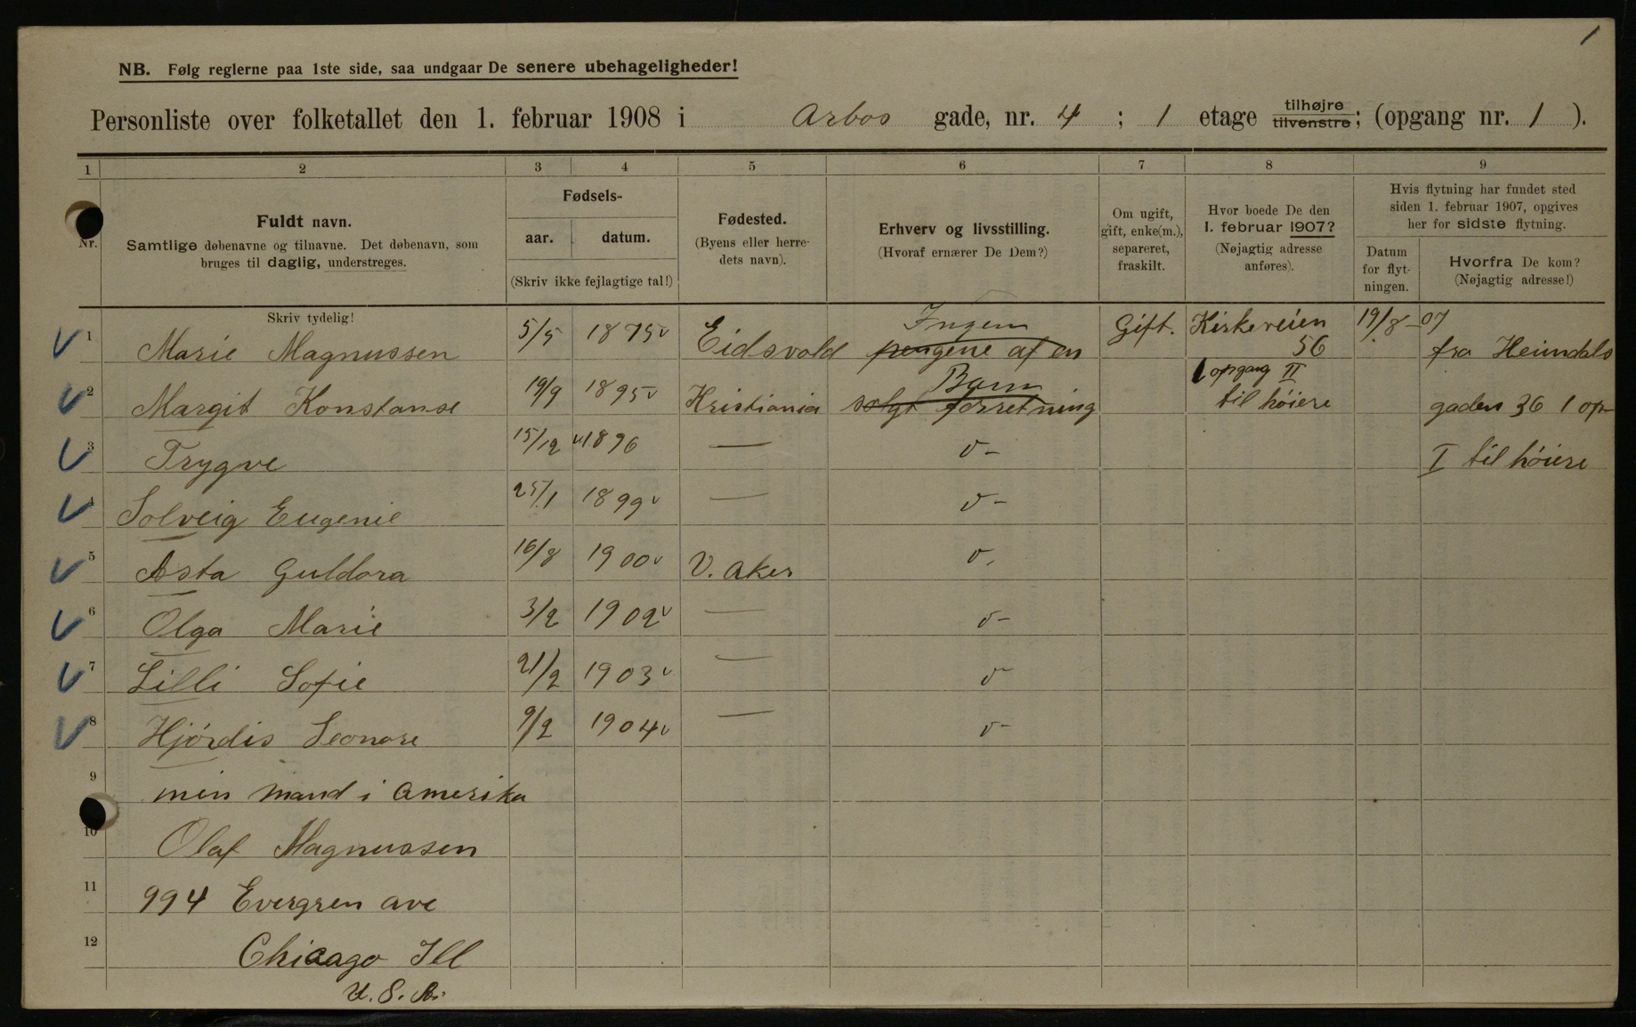 1
NB. Følg reglerne paa 1ste side, saa undgaar De senere ubehageligheder!
Personliste over folketallet den 1. februar 1908 i Arbos gade, nr. 4 ; 1 etage tilhøjre tilvenstre; (opgang nr. 1 ).
1 2 3 4 5 6 7 8 9
Nr.
Fuldt navn.
Samtlige døbenavne og tilnavne. Det døbenavn, som
bruges til daglig, understreges.
Fødsels-
aar. datum.
(Skriv ikke fejlagtige tal!)
Fødested.
(Byens eller herre-
dets navn).
Erhverv og livsstilling.
(Hvoraf ernærer De Dem?)
Om ugift,
gift, enke(m.),
separeret,
fraskilt.
Hvor boede De den
1. februar 1907?
(Nøjagtig adresse
anføres).
Hvis flytning har fundet sted
siden 1. februar 1907, opgives
her for sidste flytning.
Datum
for flyt-
ningen.
Hvorfra De kom?
(Nøjagtig adresse!)
Skriv tydelig!
1 Marie Magnussen 5/5 1875 Eidsvold Ingen pengene af en Gift. Kirkeveien 56 19/8-07 fra Heimdals
2 Margit Konstanse 19/9 1895 Kristiania Barn solgt forretning opgang II til høiere gaden 36 1 op-
3 Trygve 15/12 1896 — v- I til høiere
4 Solveig Eugenie 25/1 1899 — v-
5 Asta Guldora 16/8 1900 V. Aker v.
6 Olga Marie 3/2 1902 — v-
7 Lilli Sofie 21/2 1903 — v
8 Hjördis Leonore 9/2 1904 — v-
9 min mand i Amerika
10 Olaf Magnussen
11 994 Evergren ave
12 Chicago Ill
U. S. A.